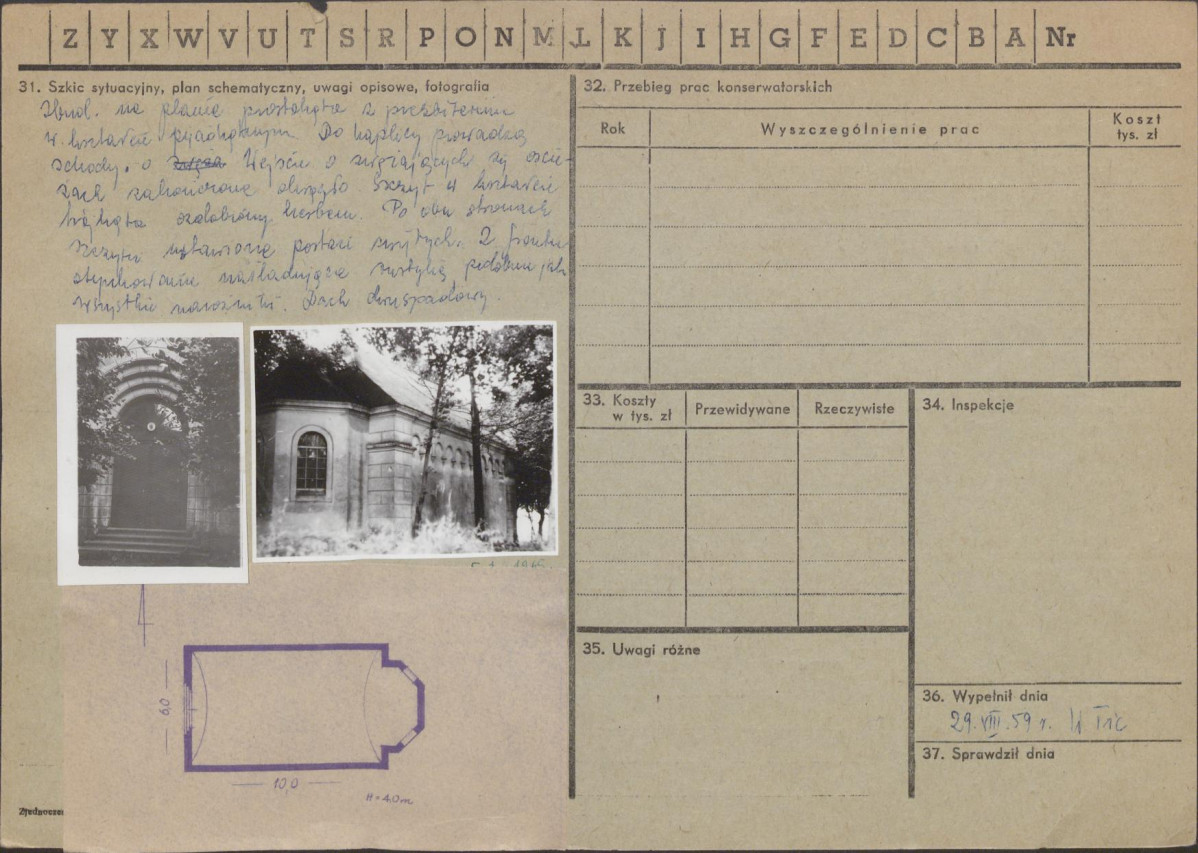 Z Y X W V U T S R P O N M L K J I H G F E D C B A Nr
31. Szkic sytuacyjny, plan schematyczny, uwagi opisowe, fotografia
na planie prostokąta z prezbiterium
w kształcie pięciobocznym. Do kaplicy prowadzą
schody. o Wejście o zwężających się oście-
żach zakończone okrągło Szczyt w kształcie
trójkąta ozdobiony herbem. Po obu stronach
szczytu ustawione postaci świętych. Z frontu
otynkowanie naśladujące rustykę podobnie jak
wszystkie narożniki. Dach dwuspadowy.
6,0
10,0
H = 4.0 m
32. Przebieg prac konserwatorskich
Rok
Wyszczególnienie prac
Koszt
tys. zł
33. Koszty
w tys. zł
Przewidywane
Rzeczywiste
34. Inspekcje
35. Uwagi różne
36. Wypełnił dnia
29. VIII. 59 r.
37. Sprawdził dnia